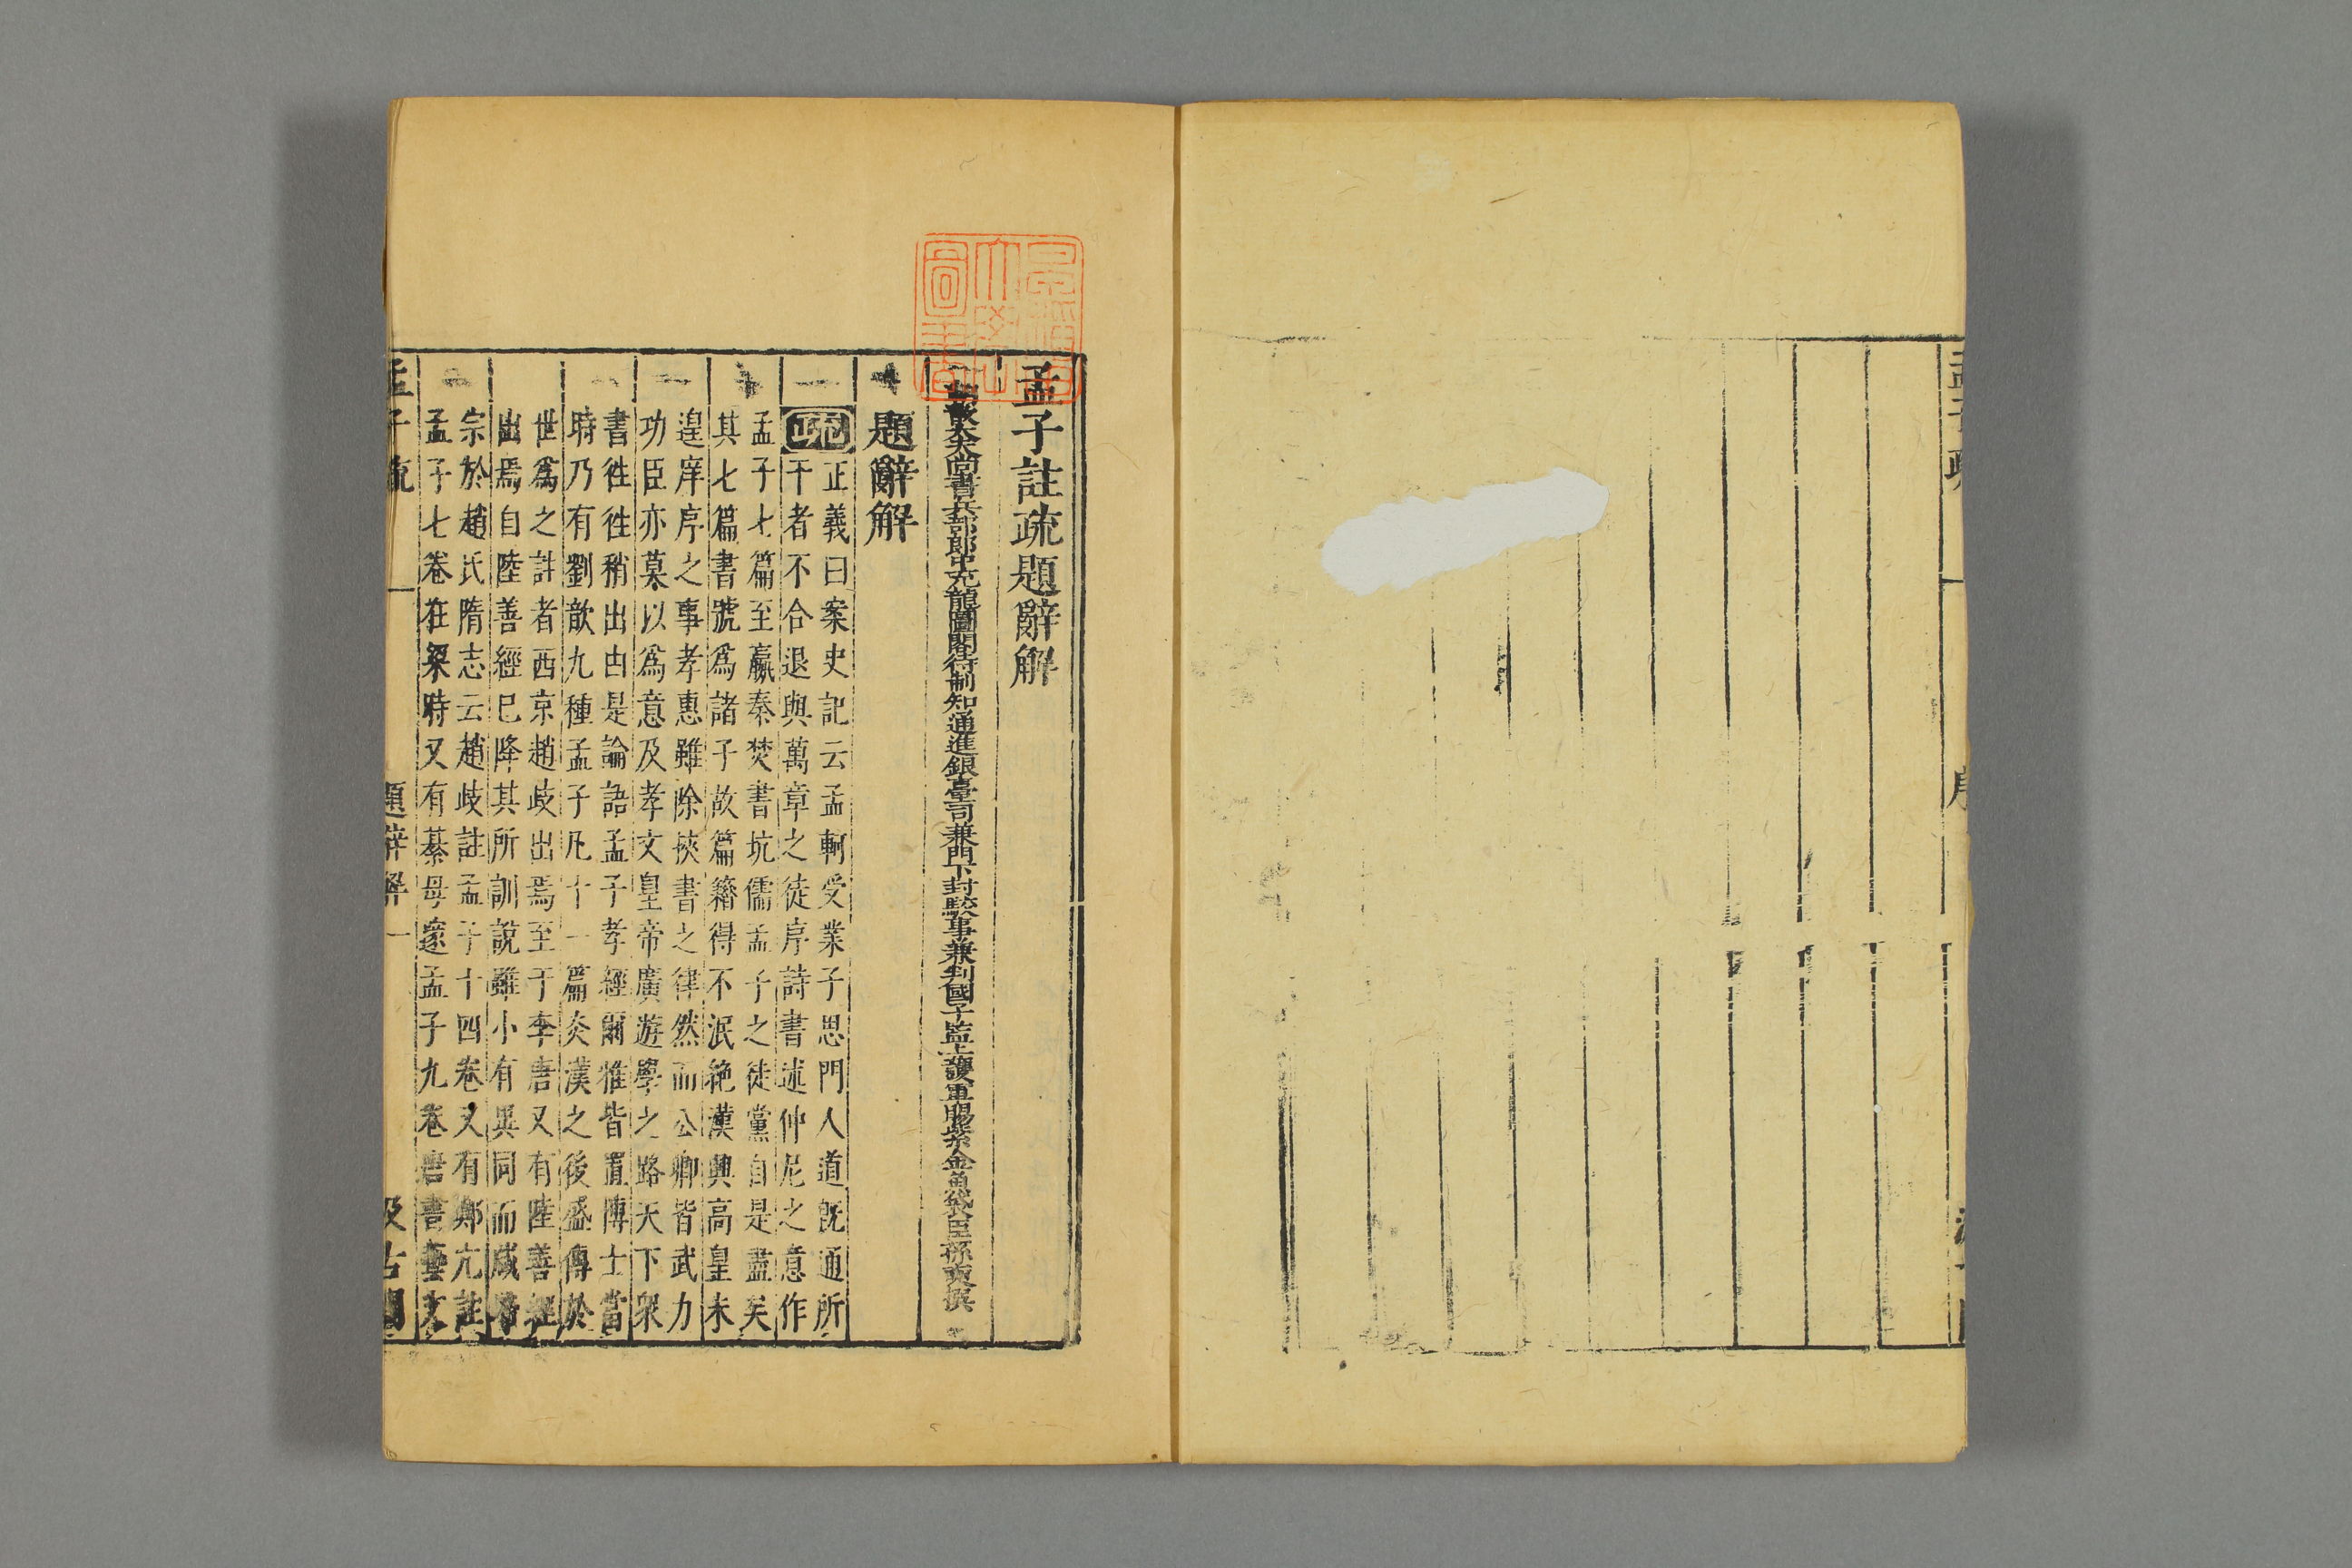 孟子註疏題辭解
朝散大夫尚書兵部郎中充龍圖閣待制知通進銀臺司兼門下封駁事兼判國子監上護軍賜紫金魚袋臣孫奭撰
題辭解
疏
正義曰案史記云孟軻受業子思門人道旣通所
干者不合退與萬章之徒序詩書述仲尼之意作
孟子七篇至嬴秦焚書坑儒孟子之徒黨自是盡矣
其七篇書號爲諸子故篇籍得不泯絶漢興高皇未
遑庠序之事孝惠雖除挾書之律然而公卿皆武力
功臣亦莫以爲意及孝文皇帝廣遊學之路天下衆
書徃徃稍出由是論語孟子孝經爾雅皆置博士當
時乃有劉歆九種孟子凡十一篇炎漢之後盛傳於
世爲之註者西京趙歧出焉至于李唐又有陸善經
出焉自陸善經已降其所訓說雖小有異同而咸
宗於趙氏隋志云趙歧註孟子十四卷又有鄭亢註
孟子七卷在梁時又有綦母邃孟子九卷唐書藝文
孟子疏
題辭解
一